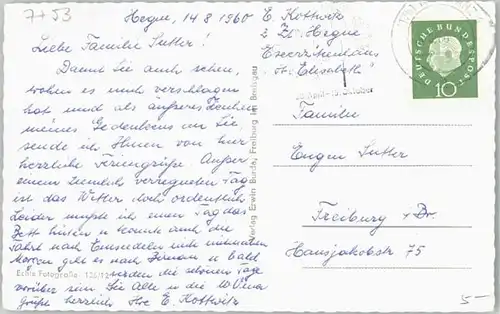 7+53
Hegne, 14.8.1960
Liebe Familie Sutter!
Damit Sie auch sehen,
wohin es mich verschlagen
hat und als äußeres Zeichen
meines Gedenkens an Sie
sende ich Ihnen von hier
herzliche Feriengrüße. Außer
einem ziemlich verregneten Tag
ist das Wetter noch ordentlich.
Leider mußte ich einen Tag das
Bett hüten u. konnte auch die
Fahrt nach Einsiedeln nicht mitmachen.
Morgen geht es nach u. bald
werden die schönen Tage
vorüber sein. Sie alle u. die
grüße herzlich Ihre E. Kottwitz
Echte Fotografie
Verlag Erwin Burda, Freiburg im Breisgau
E. Kottwitz
z. Zt. Hegne
Exerzitienhaus
"St. Elisabeth"
Oktober
DEUTSCHE BUNDESPOST
10
Familie
Eugen Sutter
Freiburg i. Br.
Hansjakobstr. 75
5-